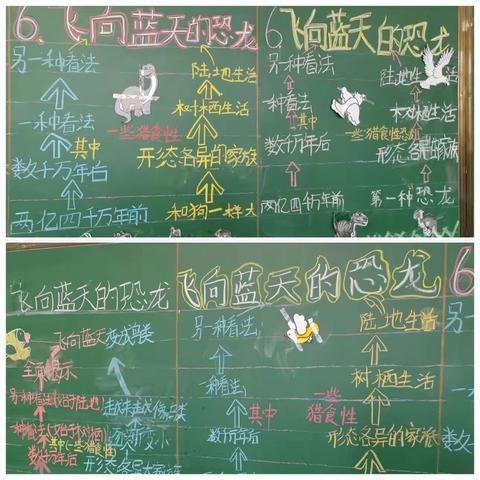 6、飞向蓝天的恐龙
另一种看法
陆地生活
一种看法
树栖生活
其中
一些猎食性
数千万年后
形态各异的家族
两亿四千万年前
和狗一样大
6、飞向蓝天的恐龙
另一种看法
陆地生活
一种看法
树栖生活
其中
一些猎食性恐龙
数千万年后
形态各异的家族
两亿四千万年前
第一种恐龙
飞向蓝天的恐龙
飞向蓝天
变成鸟类
另一种看法
一种看法
其中
一些猎食性
数千万年后
形态各异大家族
飞向蓝天的恐龙
另一种看法
陆地生活
一种看法
树栖生活
其中
一些
猎食性
数千万年后
形态各异的家族
6
另一
一
数